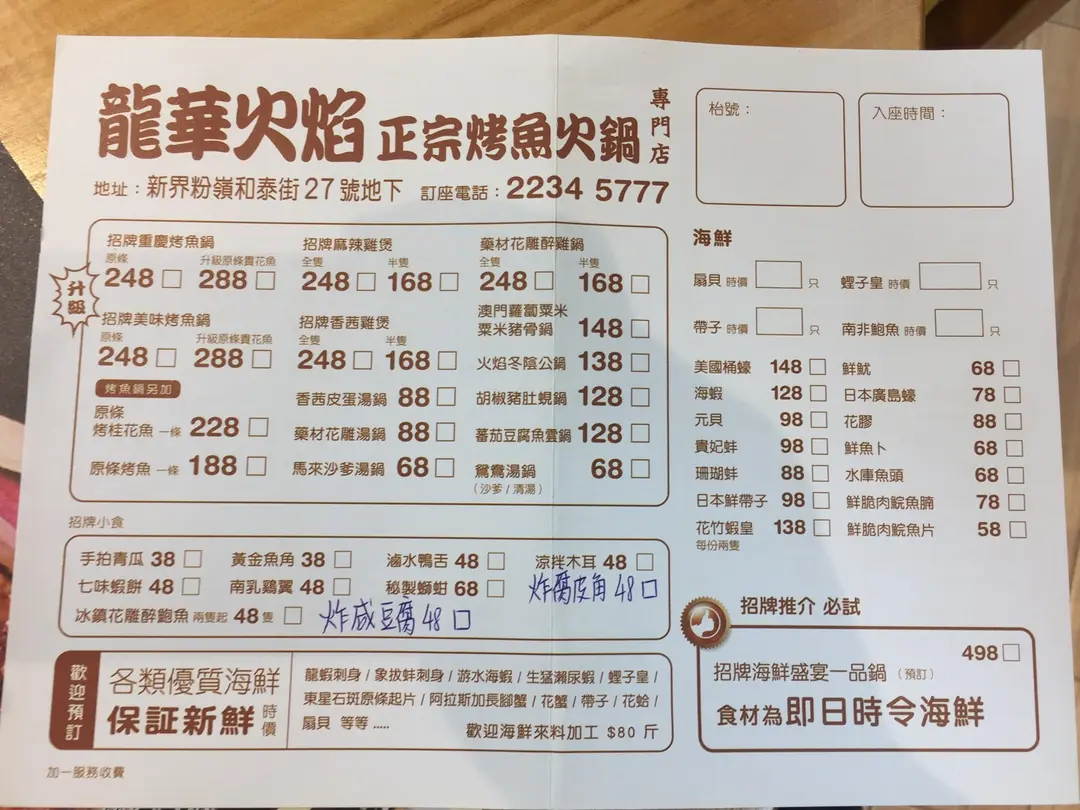 龍華火焰 正宗烤魚火鍋 專門店
地址：新界粉嶺和泰街27號地下 訂座電話：2234 5777
枱號：
入座時間：
升級
招牌重慶烤魚鍋
原條 升級原條貴花魚
248 □ 288 □
招牌麻辣雞煲
全隻 半隻
248 □ 168 □
藥材花雕醉雞鍋
全隻 半隻
248 □ 168 □
招牌美味烤魚鍋
原條 升級原條貴花魚
248 □ 288 □
招牌香茜雞煲
全隻 半隻
248 □ 168 □
澳門蘿蔔粟米
粟米豬骨鍋 148 □
火焰冬陰公鍋 138 □
烤魚鍋另加
原條
烤桂花魚 一條 228 □
原條烤魚 一條 188 □
香茜皮蛋湯鍋 88 □
藥材花雕湯鍋 88 □
馬來沙爹湯鍋 68 □
胡椒豬肚蜆鍋 128 □
蕃茄豆腐魚雲鍋 128 □
鴛鴦湯鍋 68 □
（沙爹 / 清湯）
招牌小食
手拍青瓜 38 □ 黃金魚角 38 □ 滷水鴨舌 48 □ 涼拌木耳 48 □
七味蝦餅 48 □ 南乳鷄翼 48 □ 秘製螄蚶 68 □ 炸腐皮角 48 □
冰鎮花雕醉鮑魚 兩隻起 48隻 □ 炸咸豆腐 48 □
歡迎預訂
各類優質海鮮
保証新鮮 時價
龍蝦刺身 / 象拔蚌刺身 / 游水海蝦 / 生猛瀨尿蝦 / 蟶子皇 /
東星石斑原條起片 / 阿拉斯加長腳蟹 / 花蟹 / 帶子 / 花蛤 /
扇貝 等等 .....
歡迎海鮮來料加工 $80 斤
加一服務收費
海鮮
扇貝 時價 □ 只 蟶子皇 時價 □ 只
帶子 時價 □ 只 南非鮑魚 時價 □ 只
美國桶蠔 148 □ 鮮魷 68 □
海蝦 128 □ 日本廣島蠔 78 □
元貝 98 □ 花膠 88 □
貴妃蚌 98 □ 鮮魚卜 68 □
珊瑚蚌 88 □ 水庫魚頭 68 □
日本鮮帶子 98 □ 鮮脆肉鯇魚腩 78 □
花竹蝦皇 138 □ 鮮脆肉鯇魚片 58 □
每份兩隻
招牌推介 必試
498 □
招牌海鮮盛宴一品鍋（預訂）
食材為即日時令海鮮